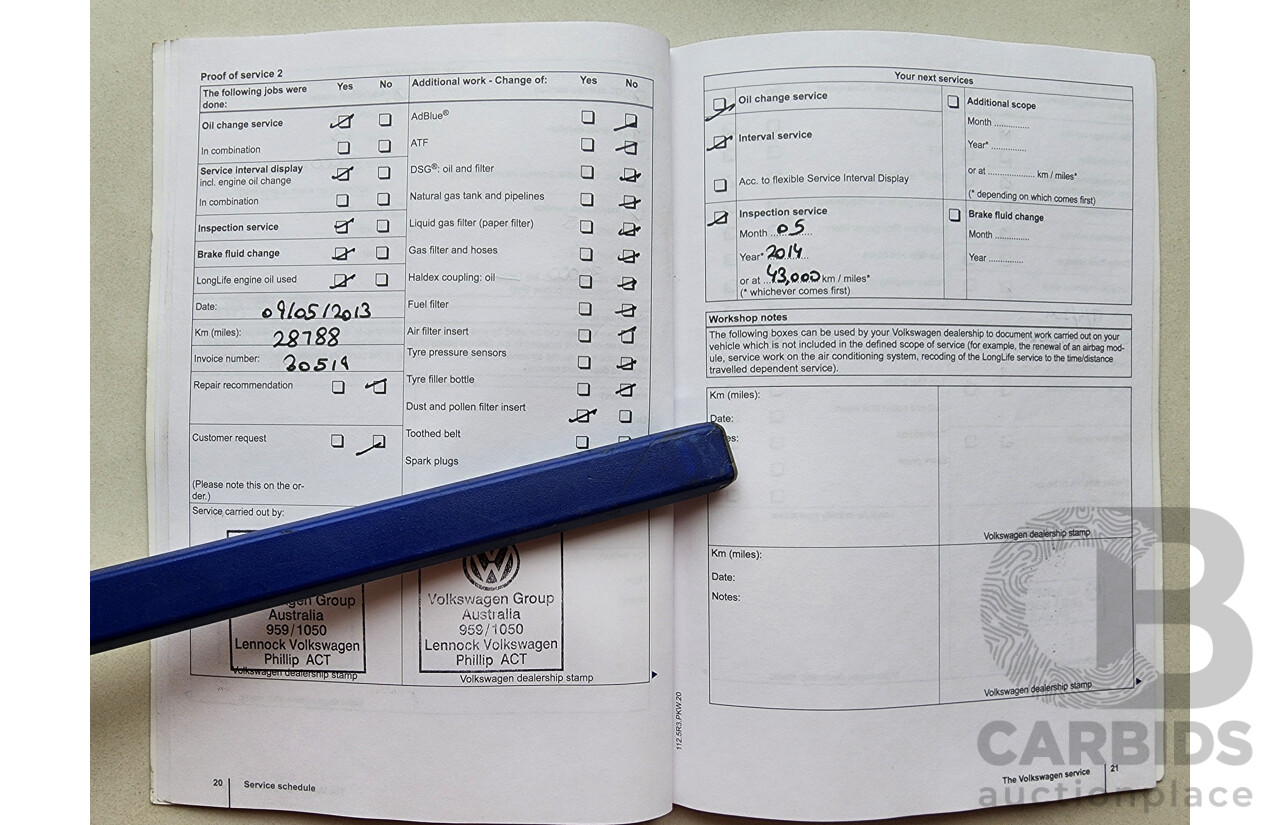 Proof of service 2
The following jobs were done: Yes No
Oil change service
In combination
Service interval display
incl. engine oil change
In combination
Inspection service
Brake fluid change
LongLife engine oil used
Date: 09/05/2013
Km (miles): 28788
Invoice number: 30519
Repair recommendation
Customer request
(Please note this on the or-
der.)
Service carried out by:
Additional work - Change of: Yes No
AdBlue®
ATF
DSG®: oil and filter
Natural gas tank and pipelines
Liquid gas filter (paper filter)
Gas filter and hoses
Haldex coupling: oil
Fuel filter
Air filter insert
Tyre pressure sensors
Tyre filler bottle
Dust and pollen filter insert
Toothed belt
Spark plugs
Group
Australia
959/1050
Lennock Volkswagen
Phillip ACT
Volkswagen dealership stamp
Volkswagen Group
Australia
959/1050
Lennock Volkswagen
Phillip ACT
Volkswagen dealership stamp
20 Service schedule
112.5R3.PKW.20
Your next services
Oil change service
Interval service
Acc. to flexible Service Interval Display
Inspection service
Month ...05......
Year* 2014...
or at ...43,000 km / miles*
(* whichever comes first)
Additional scope
Month ..............
Year* ..............
or at ................... km / miles*
(* depending on which comes first)
Brake fluid change
Month ..............
Year ..............
Workshop notes
The following boxes can be used by your Volkswagen dealership to document work carried out on your
vehicle which is not included in the defined scope of service (for example, the renewal of an airbag mod-
ule, service work on the air conditioning system, recoding of the LongLife service to the time/distance
travelled dependent service).
Km (miles):
Date:
Volkswagen dealership stamp
Km (miles):
Date:
Notes:
Volkswagen dealership stamp
The Volkswagen service 21
CARBIDS
auctionplace